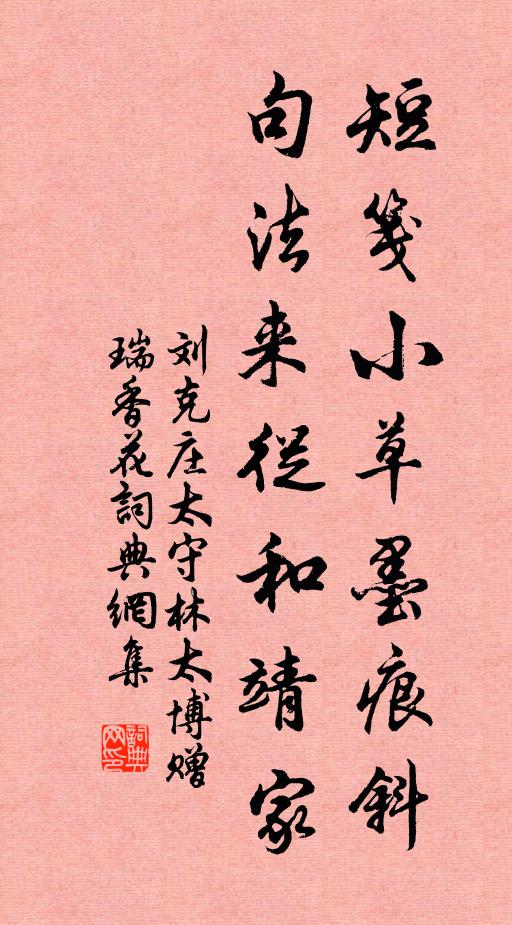 短笺小草墨痕斜
句法来從和靖家
刘克庄太守林太博赠
瑞香花詞典網集
詞典网印